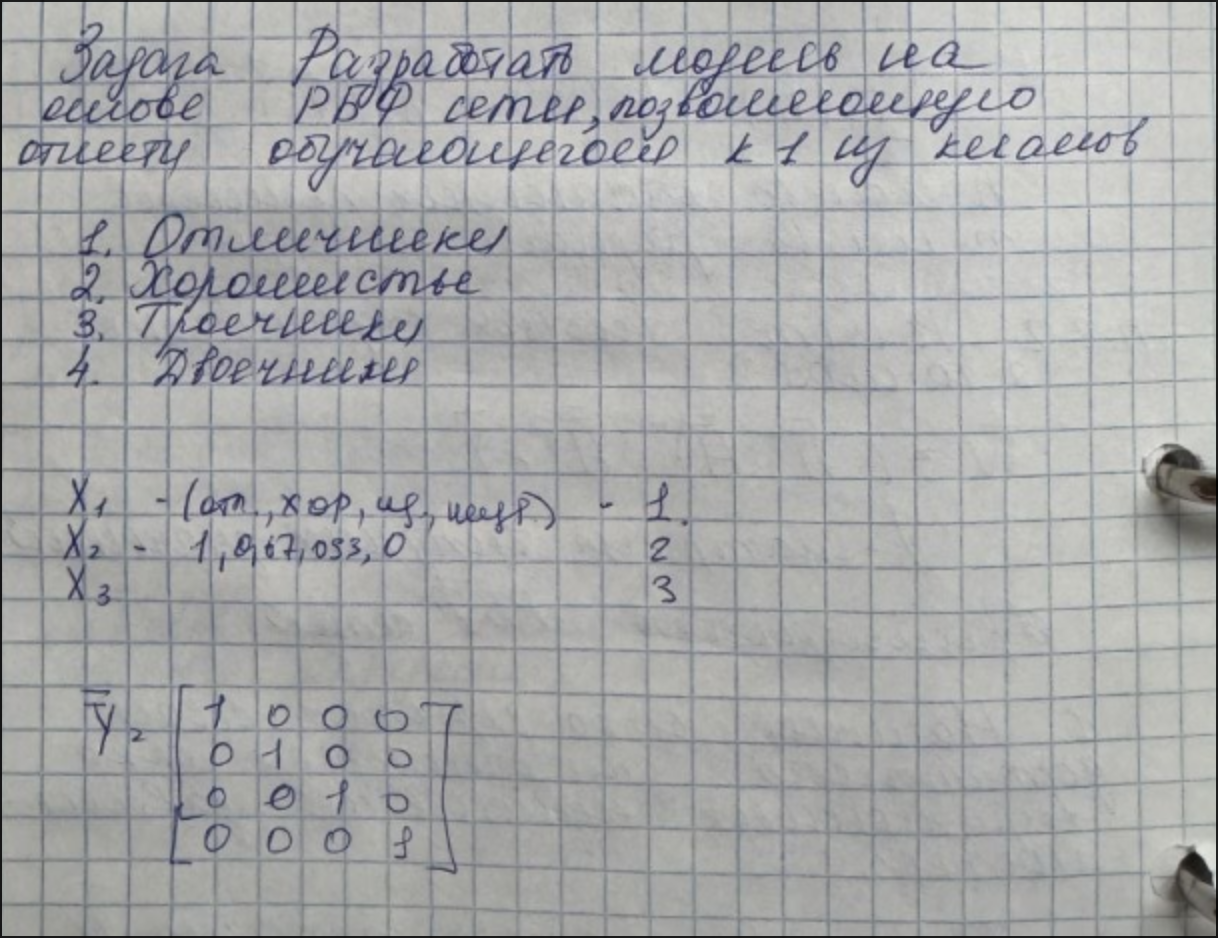 Задача Разработать модель на
основе РБФ сети, позволяющую
отнести обучающегося к 1 из классов
1. Отличники
2. Хорошисты
3. Троечники
4. Двоечники
X1 - (отл., хор, уд., неуд.) - 1.
X2 - 1, 0,67, 033, 0 2
X3 3
Y = 1 0 0 0
0 1 0 0
0 0 1 0
0 0 0 1